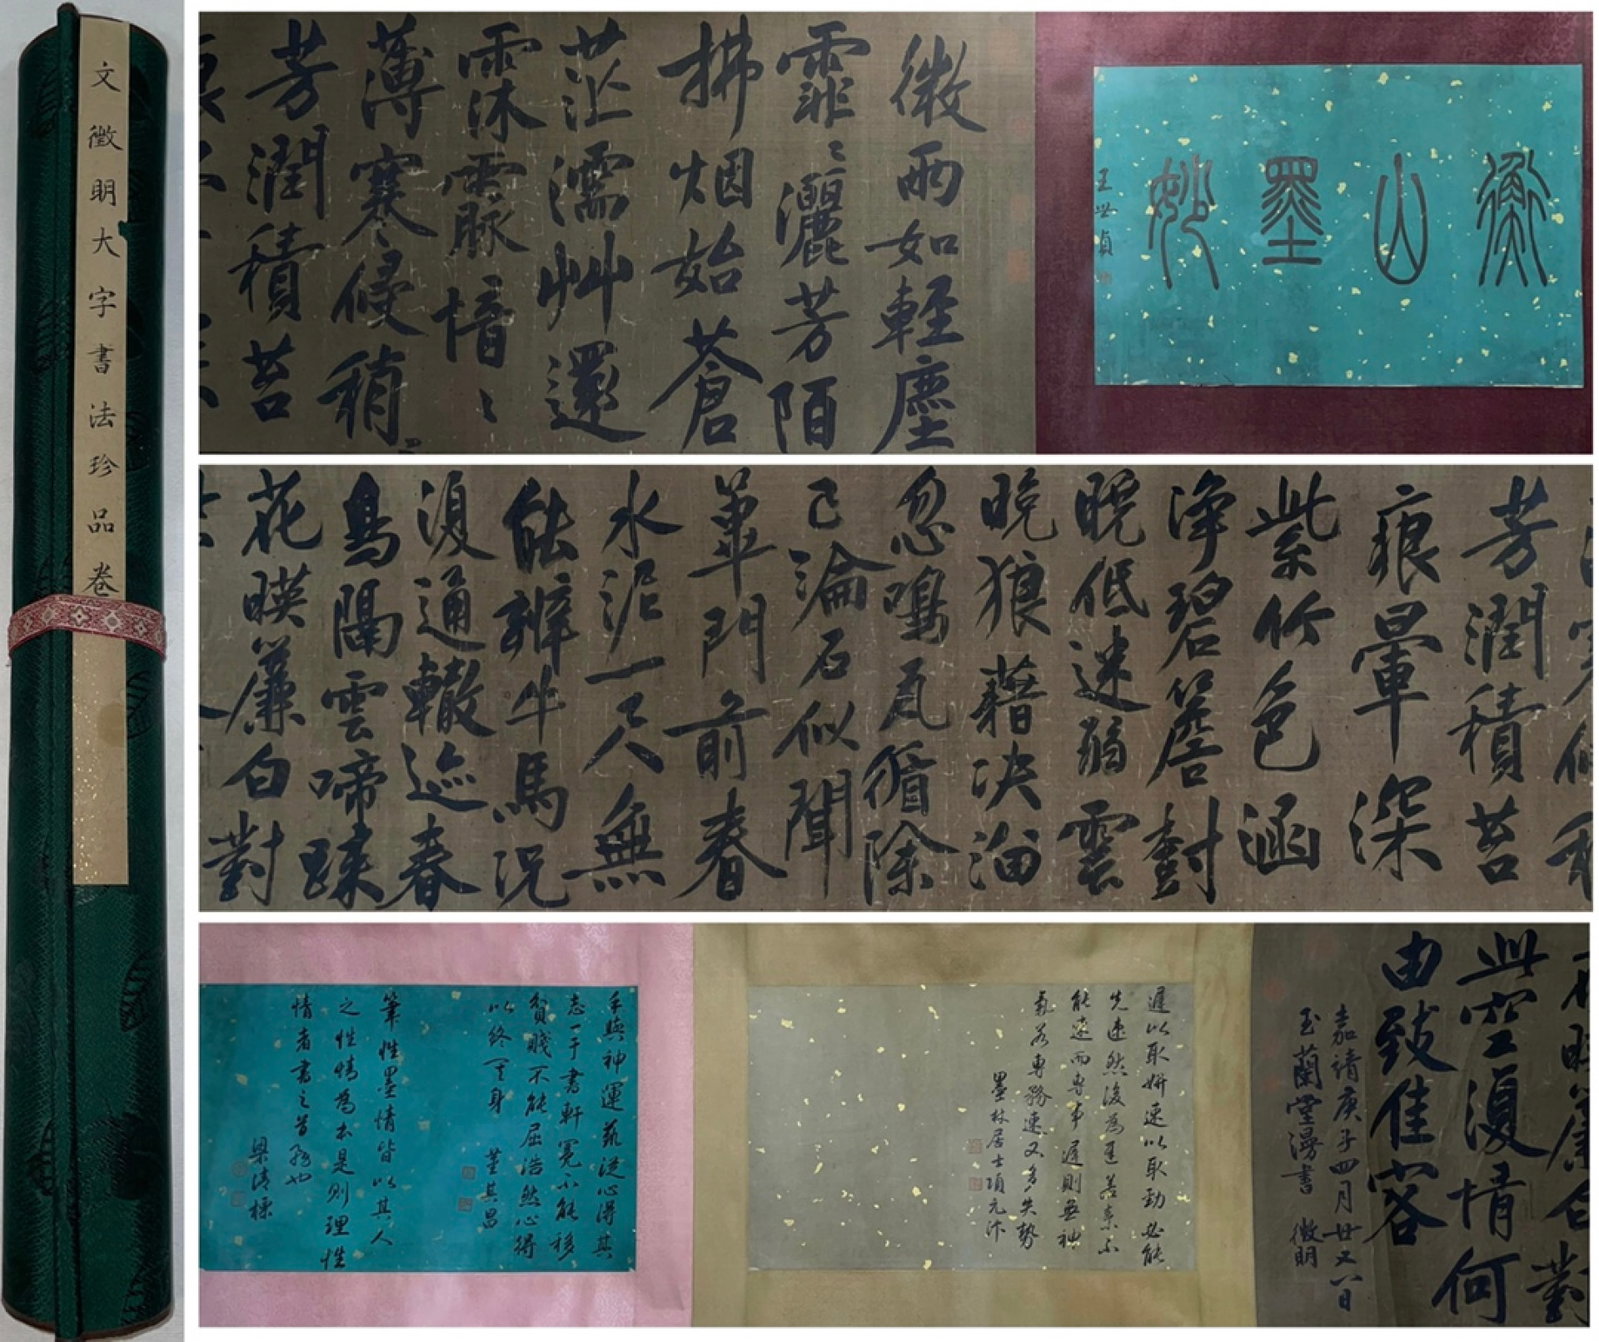 文徵明大字書法珍品卷
衡山墨妙
王世貞
微雨如輕塵
霏〻灑芳陌
拂烟始蒼
茫濡艸還
霡霂脈愔〻
薄寒侵稍
芳潤積苔
芳潤積苔
痕暈深
紫竹色涵
淨碧簷對
晚低迷弱雲
晚狼藉决溜
忽鳴瓦循除
已淪石似聞
蓽門前春
水泥一尺無
能辨牛馬况
復通轍迹春
鳥隔雲啼踈
花暎簾白對
花暎簾白對
此空復情何
由致佳客
嘉靖庚子四月廿又八日
玉蘭堂漫書 徵明
遲以取妍速以取勁必能
先速然後為遲若素不
能速而專事遲則無神
氣若專務速又多失勢
墨林居士項元汴
手與神運藝從心得其
志一于書軒冕不能移
貧賤不能屈浩然心得
以終其身 董其昌
筆性墨情皆以其人
之性情為本是則理性
情者書之首務也
梁清標